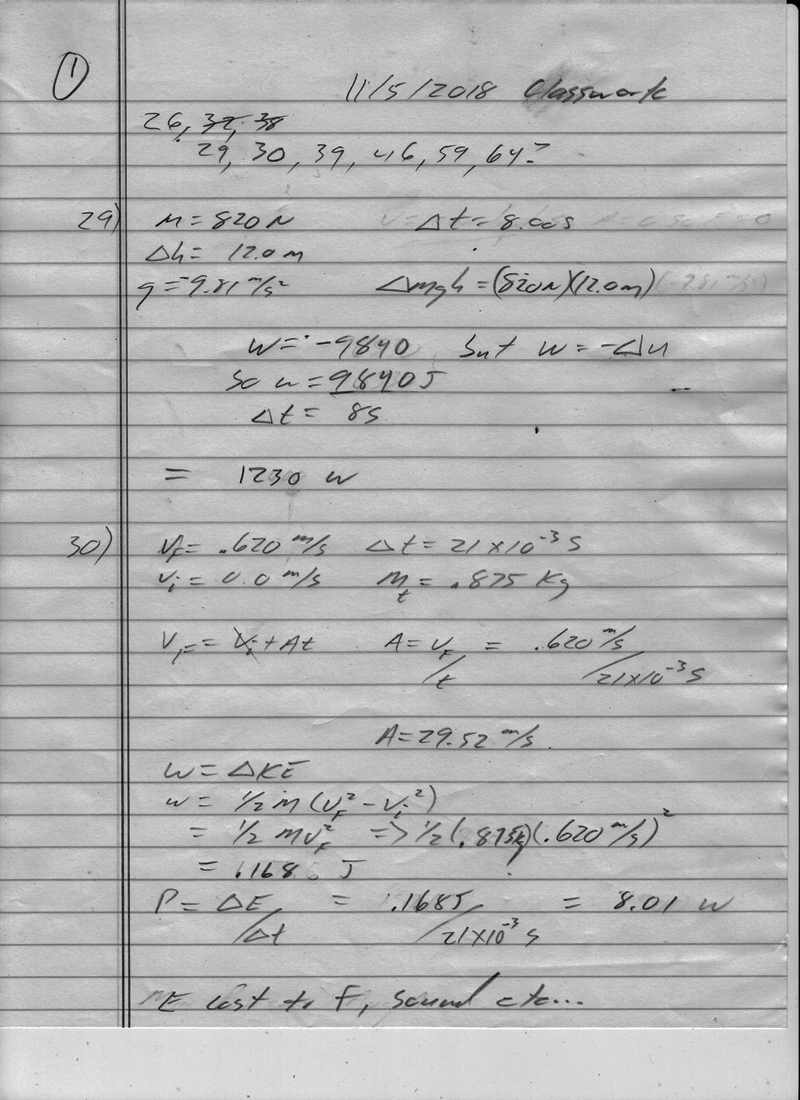 1
11/5/2018 Classwork
26, 32, 38
29, 30, 39, 46, 59, 64?
29) M = 820N Δt = 8.00s
Δh = 12.0 m
g = -9.81 m/s² Δmgh = (820N)(12.0m)
W = -9840 but W = -Δu
so u = 9840J
Δt = 8s
= 1230 W
30) V_f = .620 m/s Δt = 21 x10⁻³ s
V_i = 0.0 m/s M_t = .875 Kg
V_F = V_i + At A = V_F/t = .620 m/s / 21x10⁻³ s
A = 29.52 m/s
W = ΔKE
W = 1/2 M (V_F² - V_i²)
= 1/2 MV_F² => 1/2 (.875kg)(.620 m/s)²
= .168 J
P = ΔE/Δt = .168J / 21x10⁻³ s = 8.01 W
ME lost to F, sound etc...